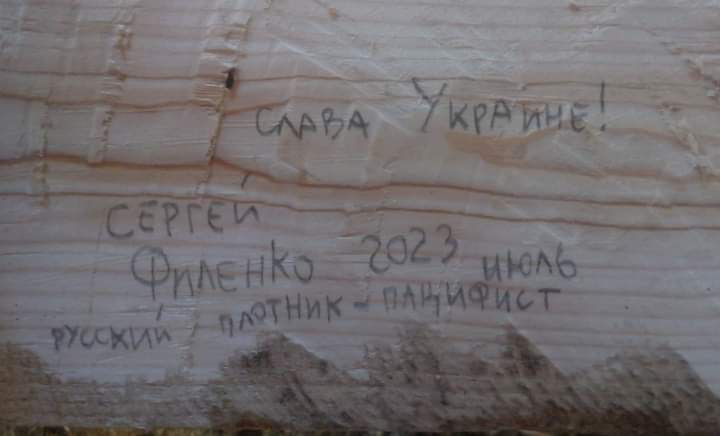 СЛАВА УКРАИНЕ!
СЕРГЕЙ
ФИЛЕНКО 2023 ИЮЛЬ
РУССКИЙ ПЛОТНИК-ПАЦИФИСТ